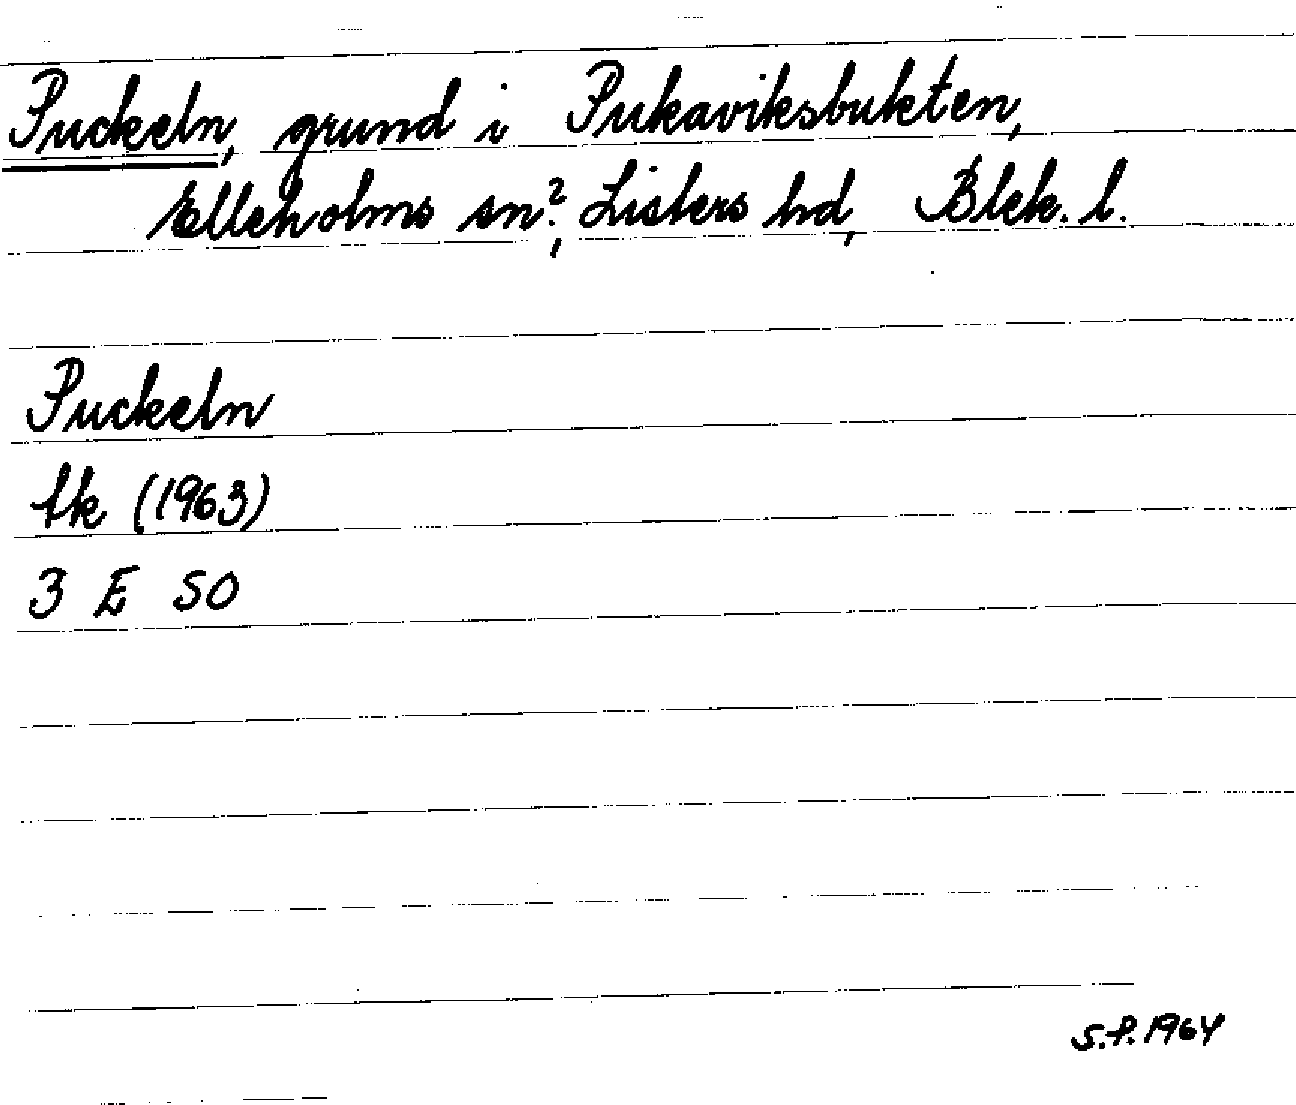 Puckeln, grund i Pukaviksbukten,
Elleholms sn?, Listers hd, Blek. l.
Puckeln
tk (1963)
3 E SO
S.P. 1964